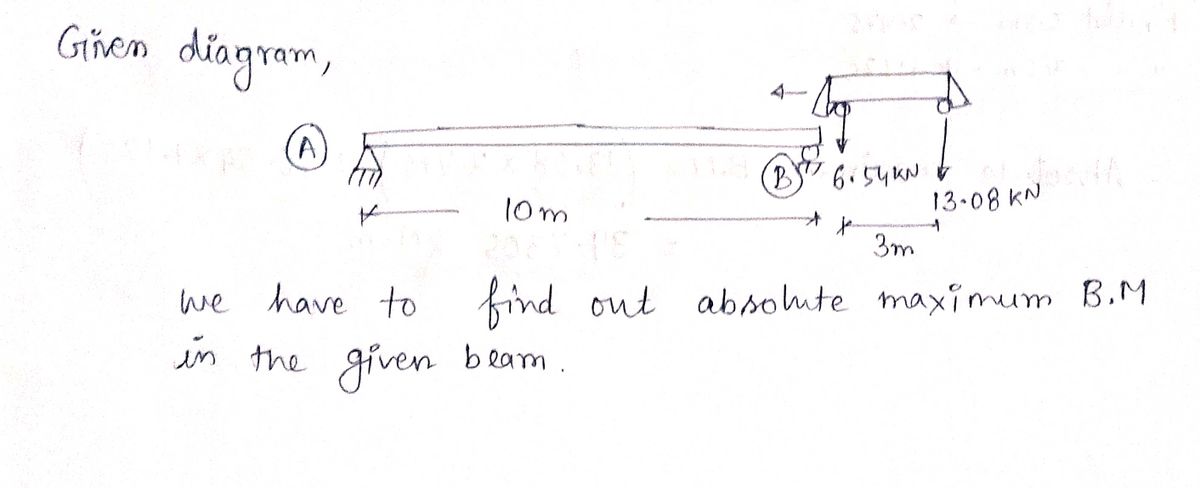 Given diagram,
A
B
6.54KN
13.08 KN
10m
3m
we have to find out absolute maximum B.M
in the given beam.